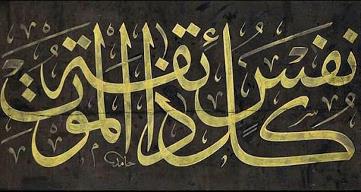 كل نفس ذائقة الموت
حامد